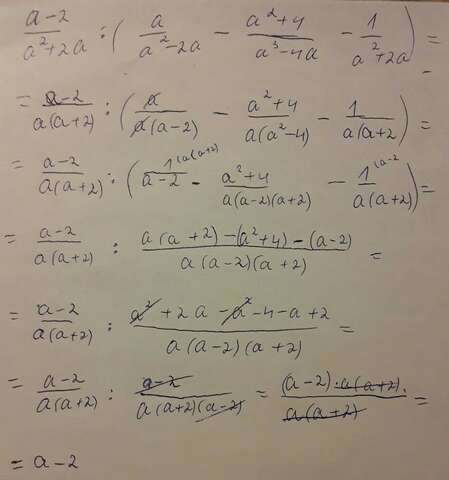 (a-2)/(a²+2a) : ( a/(a²-2a) - (a²+4)/(a³-4a) - 1/(a²+2a) ) =
= (a-2)/(a(a+2)) : ( a/(a(a-2)) - (a²+4)/(a(a²-4)) - 1/(a(a+2)) ) =
= (a-2)/(a(a+2)) : ( 1^(a(a+2)/(a-2) - (a²+4)/(a(a-2)(a+2)) - 1^(a-2/(a(a+2)) ) =
= (a-2)/(a(a+2)) : (a(a+2)-(a²+4)-(a-2))/(a(a-2)(a+2)) =
= (a-2)/(a(a+2)) : (a²+2a-a²-4-a+2)/(a(a-2)(a+2)) =
= (a-2)/(a(a+2)) : (a-2)/(a(a+2)(a-2)) = ((a-2)·a(a+2))/(a(a+2)) =
= a-2